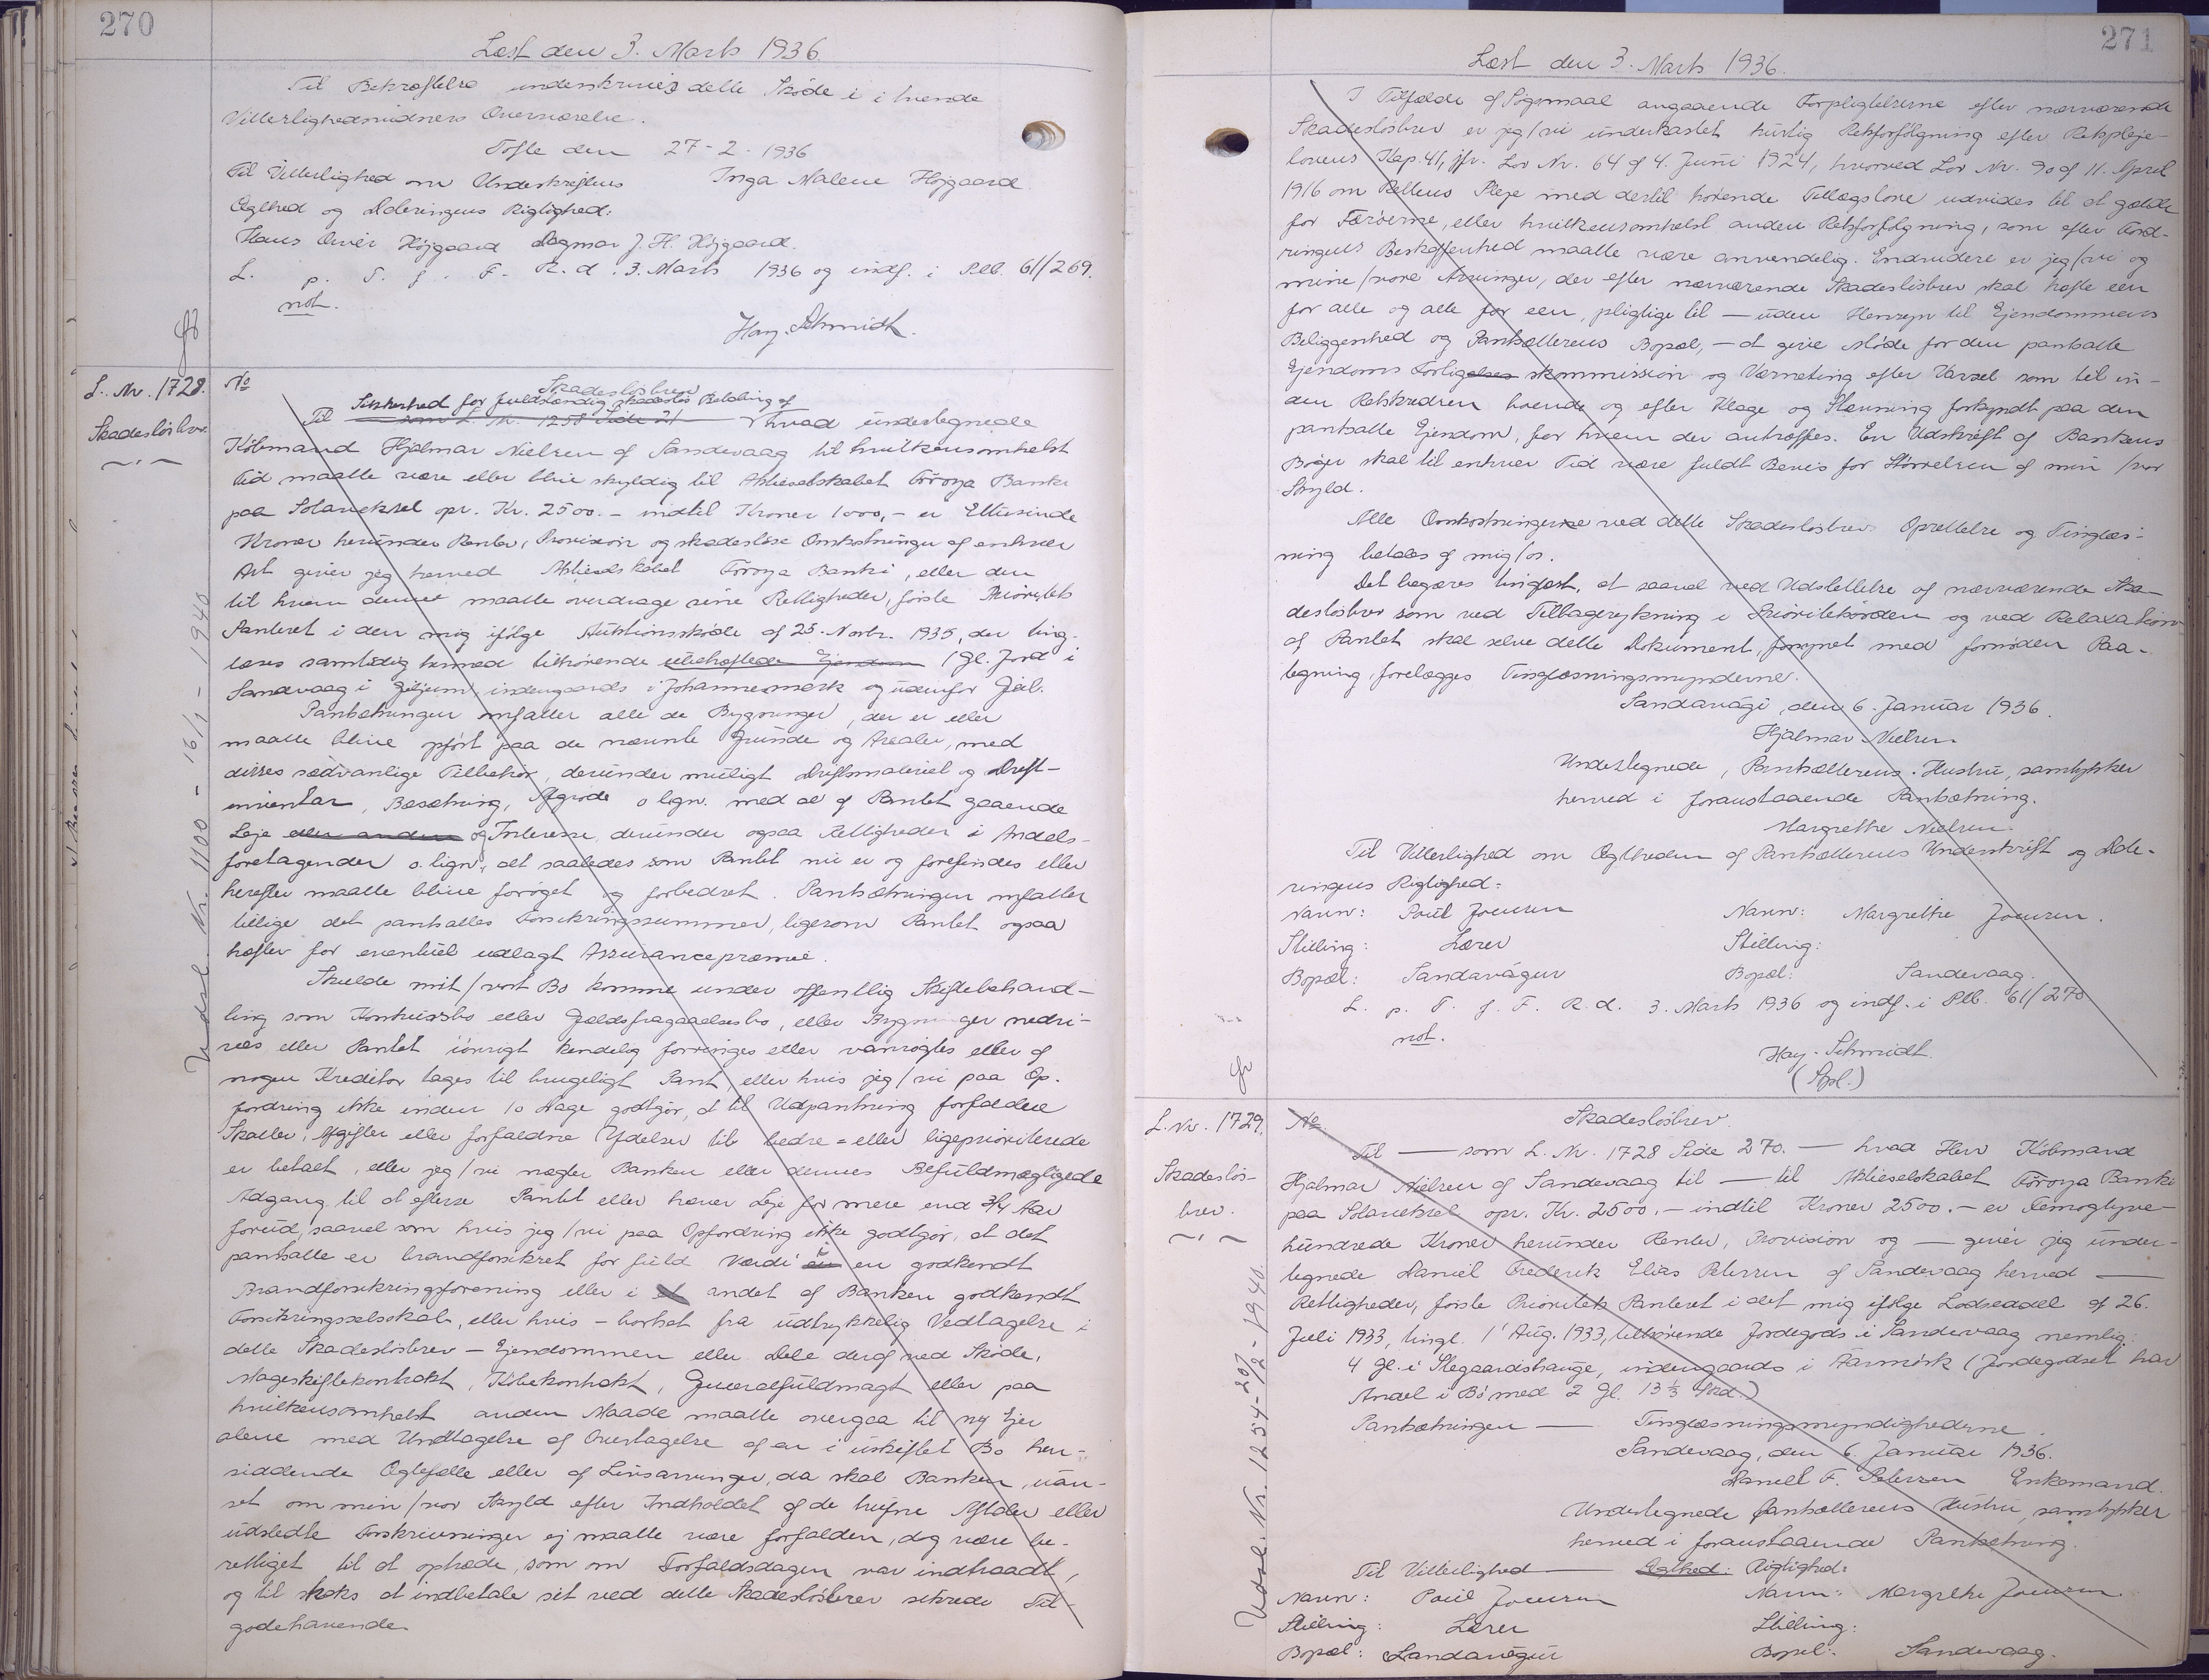 270
Læst den 3. Marts 1936
Til Bekræftelse underskrives dette Skøde i i tvende
Vitterlighedsvidners Overværelse.
Tofte den 27-2-1936
Til Vitterlighed om Underskriftens Inga Malene Højgaard
Ægthed og Dateringens Rigtighed:
Hans Oliver Højgaard Dagmar J. H. Højgaard.
L. p. T. f. F. R. d. 3. Marts 1936 og indf. i Plb. 61/269.
not.
Hay-Schmidt.
L. Nr. 1728.
Skadesløsbrev.
Udsl. Nr. 1100 - 16/1 - 1940
No
Skadesløsbrev
Sikkerhed for fuldstændig skadesløs Betaling af
Til som L. Nr. 1258 Side 21 hvad undertegnede
Købmand Hjalmar Nielsen af Sandevaag til hvilkensomhelst
Tid maatte være eller blive skyldig til Aktieselskabet Føroya Banki
paa Solaveksel opr. Kr. 2500.- indtil Kroner 1000,- er Ettusinde
Kroner herunder Renter, Provision og skadesløse Omkostninger af enhver
Art giver jeg herved Aktieselskabet Føroya Banki, eller den
til hvem denne maatte overdrage sine Rettigheder, første Prioritets
Panteret i den mig ifølge Auktionsskøde af 25. Novbr. 1935, der ting-
læses samtidig hermed tilhørende ubehæftede Ejendom 1 gl. Jord i
Sandevaag i Giljum, indengaards i Johannesmørk og udenfor Gjal.
Pantsætningen omfatter alle de Bygninger, der er eller
maatte blive opført paa de nævnte Grunde og Arealer, med
disses sædvanlige Tilbehør, derunder muligt Driftsmateriel og Drift-
inventar, Besætning, Afgrøde o lign. med al af Pantet gaaende
Leje eller anden og Interesse, derunder ogsaa Rettigheder i Andels-
foretagender o. lign., alt saaledes som Pantet nu er og forefindes eller
herefter maatte blive forøget og forbedret. Pantsætningen omfatter
tillige det pantsattes Forsikringssummer, ligesom Pantet ogsaa
hæfter for eventuel udlagt Assurancepræmie.
Skulde mit/vort Bo komme under offentlig Skiftebehand-
ling som Konkursbo eller Gældsfragaaelsesbo, eller Bygninger nedri-
ves eller Pantet iøvrigt kendelig forringes eller vanrøgtes eller af
nogen Kreditor tages til brugeligt Pant, eller hvis jeg/vi paa Op-
fordring ikke inden 10 Dage godtgør, at til Udpantning forfaldne
Skatter, Afgifter eller forfaldne Ydelser til bedre- eller ligeprioriterede
er betalt, eller jeg/vi nægter Banken eller dennes Befuldmægtigede
Adgang til at efterse Pantet eller hæver Leje for mere end 3/4 Aar
forud, saavel som hvis jeg/vi paa Opfordring ikke godtgør, at det
pantsatte er brandforsikret for fuld Værdi i en godkendt
Brandforsikringsforening eller i et andet af Banken godkendt
Forsikringsselskab, eller hvis - bortset fra udtrykkelig Vedtagelse i
dette Skadesløsbrev - Ejendommen eller Dele deraf ved Skøde,
Mageskiftekontrakt, Købekontrakt, Generalfuldmagt eller paa
hvilkensomhelst anden Maade maatte overgaa til ny Ejer
alene med Undtagelse af Overtagelse af en i uskiftet Bo hen-
siddende Ægtefælle eller af Livsarvinger, da skal Banken, uan-
set om min/vor Skyld efter Indholdet af de trufne Aftaler eller
udstedte Forskrivninger ej maatte være forfalden, dog være be-
rettiget til at optræde, som om Forfaldsdagen var indtraadt,
og til straks at indbetale sit ved dette Skadesløsbrev sikrede Til-
godehavende.
271
Læst den 3. Marts 1936.
I Tilfælde af Søgsmaal angaaende Forpligtelserne efter nærværende
Skadesløsbrev er jeg/vi underkastet hurtig Retsforfølgning efter Retspleje-
lovens Kap. 41, jfr. Lov Nr. 64 af 4. Juni 1924, hvorved Lov Nr. 90 af 11. April
1916 om Rettens Pleje med dertil hørende Tillægslove udvides til at gælde
for Færøerne, eller hvilkensomhelst anden Retsforfølgning, som efter Ford-
ringens Beskaffenhed maatte være anvendelig. Endvidere er jeg/vi og
mine/vore Arvinger, der efter nærværende Skadesløsbrev skal hæfte een
for alle og alle for een, pligtige til - uden Hensyn til Ejendommens
Beliggenhed og Pantsætterens Bopæl, - at give Møde for den pantsatte
Ejendoms Forligelses skommission og Værneting efter Varsel som til in-
den Retskredsen boende og efter Klage og Stævning forkyndt paa den
pantsatte Ejendom, for hvem der antræffes. En Udskrift af Bankens
Bøger skal til enhver Tid være fuldt Bevis for Størrelsen af min/vor
Skyld.
Alle Omkostningerne ved dette Skadesløsbrevs Oprettelse og Tinglæs-
ning betales af mig/os.
Det begæres tinglæst, at saavel ved Udslettelse af nærværende Ska-
desløsbrev som ved Tilbagerykning i Prioritetsorden og ved Relaxation
af Pantet skal selve dette Dokument, forsynet med fornøden Paa-
tegning, forelægges Tinglæsningsmynderne.
Sandavági, den 6. Januar 1936.
Hjalmar Nielsen
Undertegnede, Pantsætterens Hustru, samtykker
herved i foranstaaende Pantsætning.
Margrethe Nielsen.
Til Vitterlighed om Ægtheden af Pantsætterens Underskrift og Date-
ringens Rigtighed:
Navn: Poul Joensen Navn: Margrethe Joensen.
Stilling: Lærer Stilling:
Bopæl: Sandavágur Bopæl: Sandevaag.
L. p. T. f. F. R. d. 3. Marts 1936 og indf. i Plb. 61/270
not.
Hay-Schmidt.
(Spl.)
L. Nr. 1729.
Skadesløs-
brev.
Udsl. Nr. 1254-20/2-1940.
No.
Skadesløsbrev.
Til — som L. Nr. 1728 Side 270. — hvad Herr Købmand
Hjalmar Nielsen af Sandevaag til — til Aktieselskabet Føroya Banki
paa Solaveksel opr. Kr. 2500.- indtil Kroner 2500.- er Femogtyve-
hundrede Kroner herunder Renter, Provision og — giver jeg under-
tegnede Daniel Frederik Elias Petersen af Sandevaag herved —
Rettigheder, første Prioritets Panteret i det mig ifølge Lodseddel af 26.
Juli 1933, tingl. 1' Aug. 1933, tilhørende Jordegods i Sandevaag nemlig:
4 gl. i Stegaardstange, indengaards i Aarmørk (Jordegodset har
Andel i Bø med 2 gl. 13 1/3 Skd.)
Pantsætningen — Tinglæsningsmyndighederne.
Sandevaag, den 6. Januar 1936.
Daniell F. Petersen Enkemand.
Undertegnede Pantsætterens Hustru, samtykker
herved i foranstaaende Pantsætning.
Til Vitterlighed — Ægthed: Rigtighed:
Navn: Poul Joensen Navn: Margrethe Joensen.
Stilling: Lærer Stilling:
Bopæl: Sandavágur Bopæl: Sandevaag.